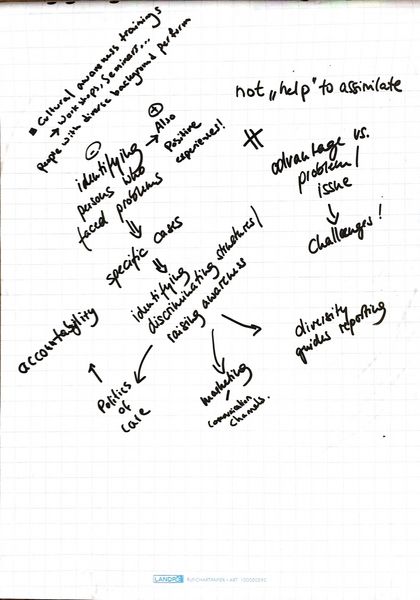 ▪ Cultural awareness trainings
→ Workshops, Seminars...
People with diverse background perform
not „help" to assimilate
⊖
identifying
persons who
faced problems
⊕
→ Also
positive
experiences!
#
advantage vs.
problem/
issue
↓
challenges!
⇓
specific cases
⇓
identifying
discriminating structures/
raising awareness
accountability
↑
Politics
of
care
marketing
/
communication
channels.
diversity
guides reporting
LANDRÉ FLIPCHARTPAPIER • ART. 100050592